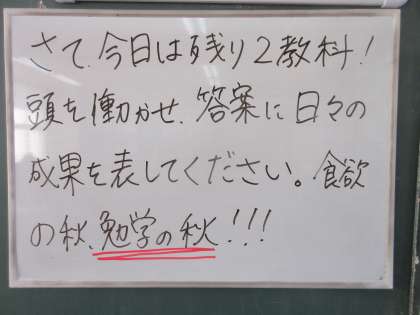 さて、今日は残り2教科!
頭を働かせ、答案に日々の
成果を表してください。食欲
の秋、勉学の秋!!!